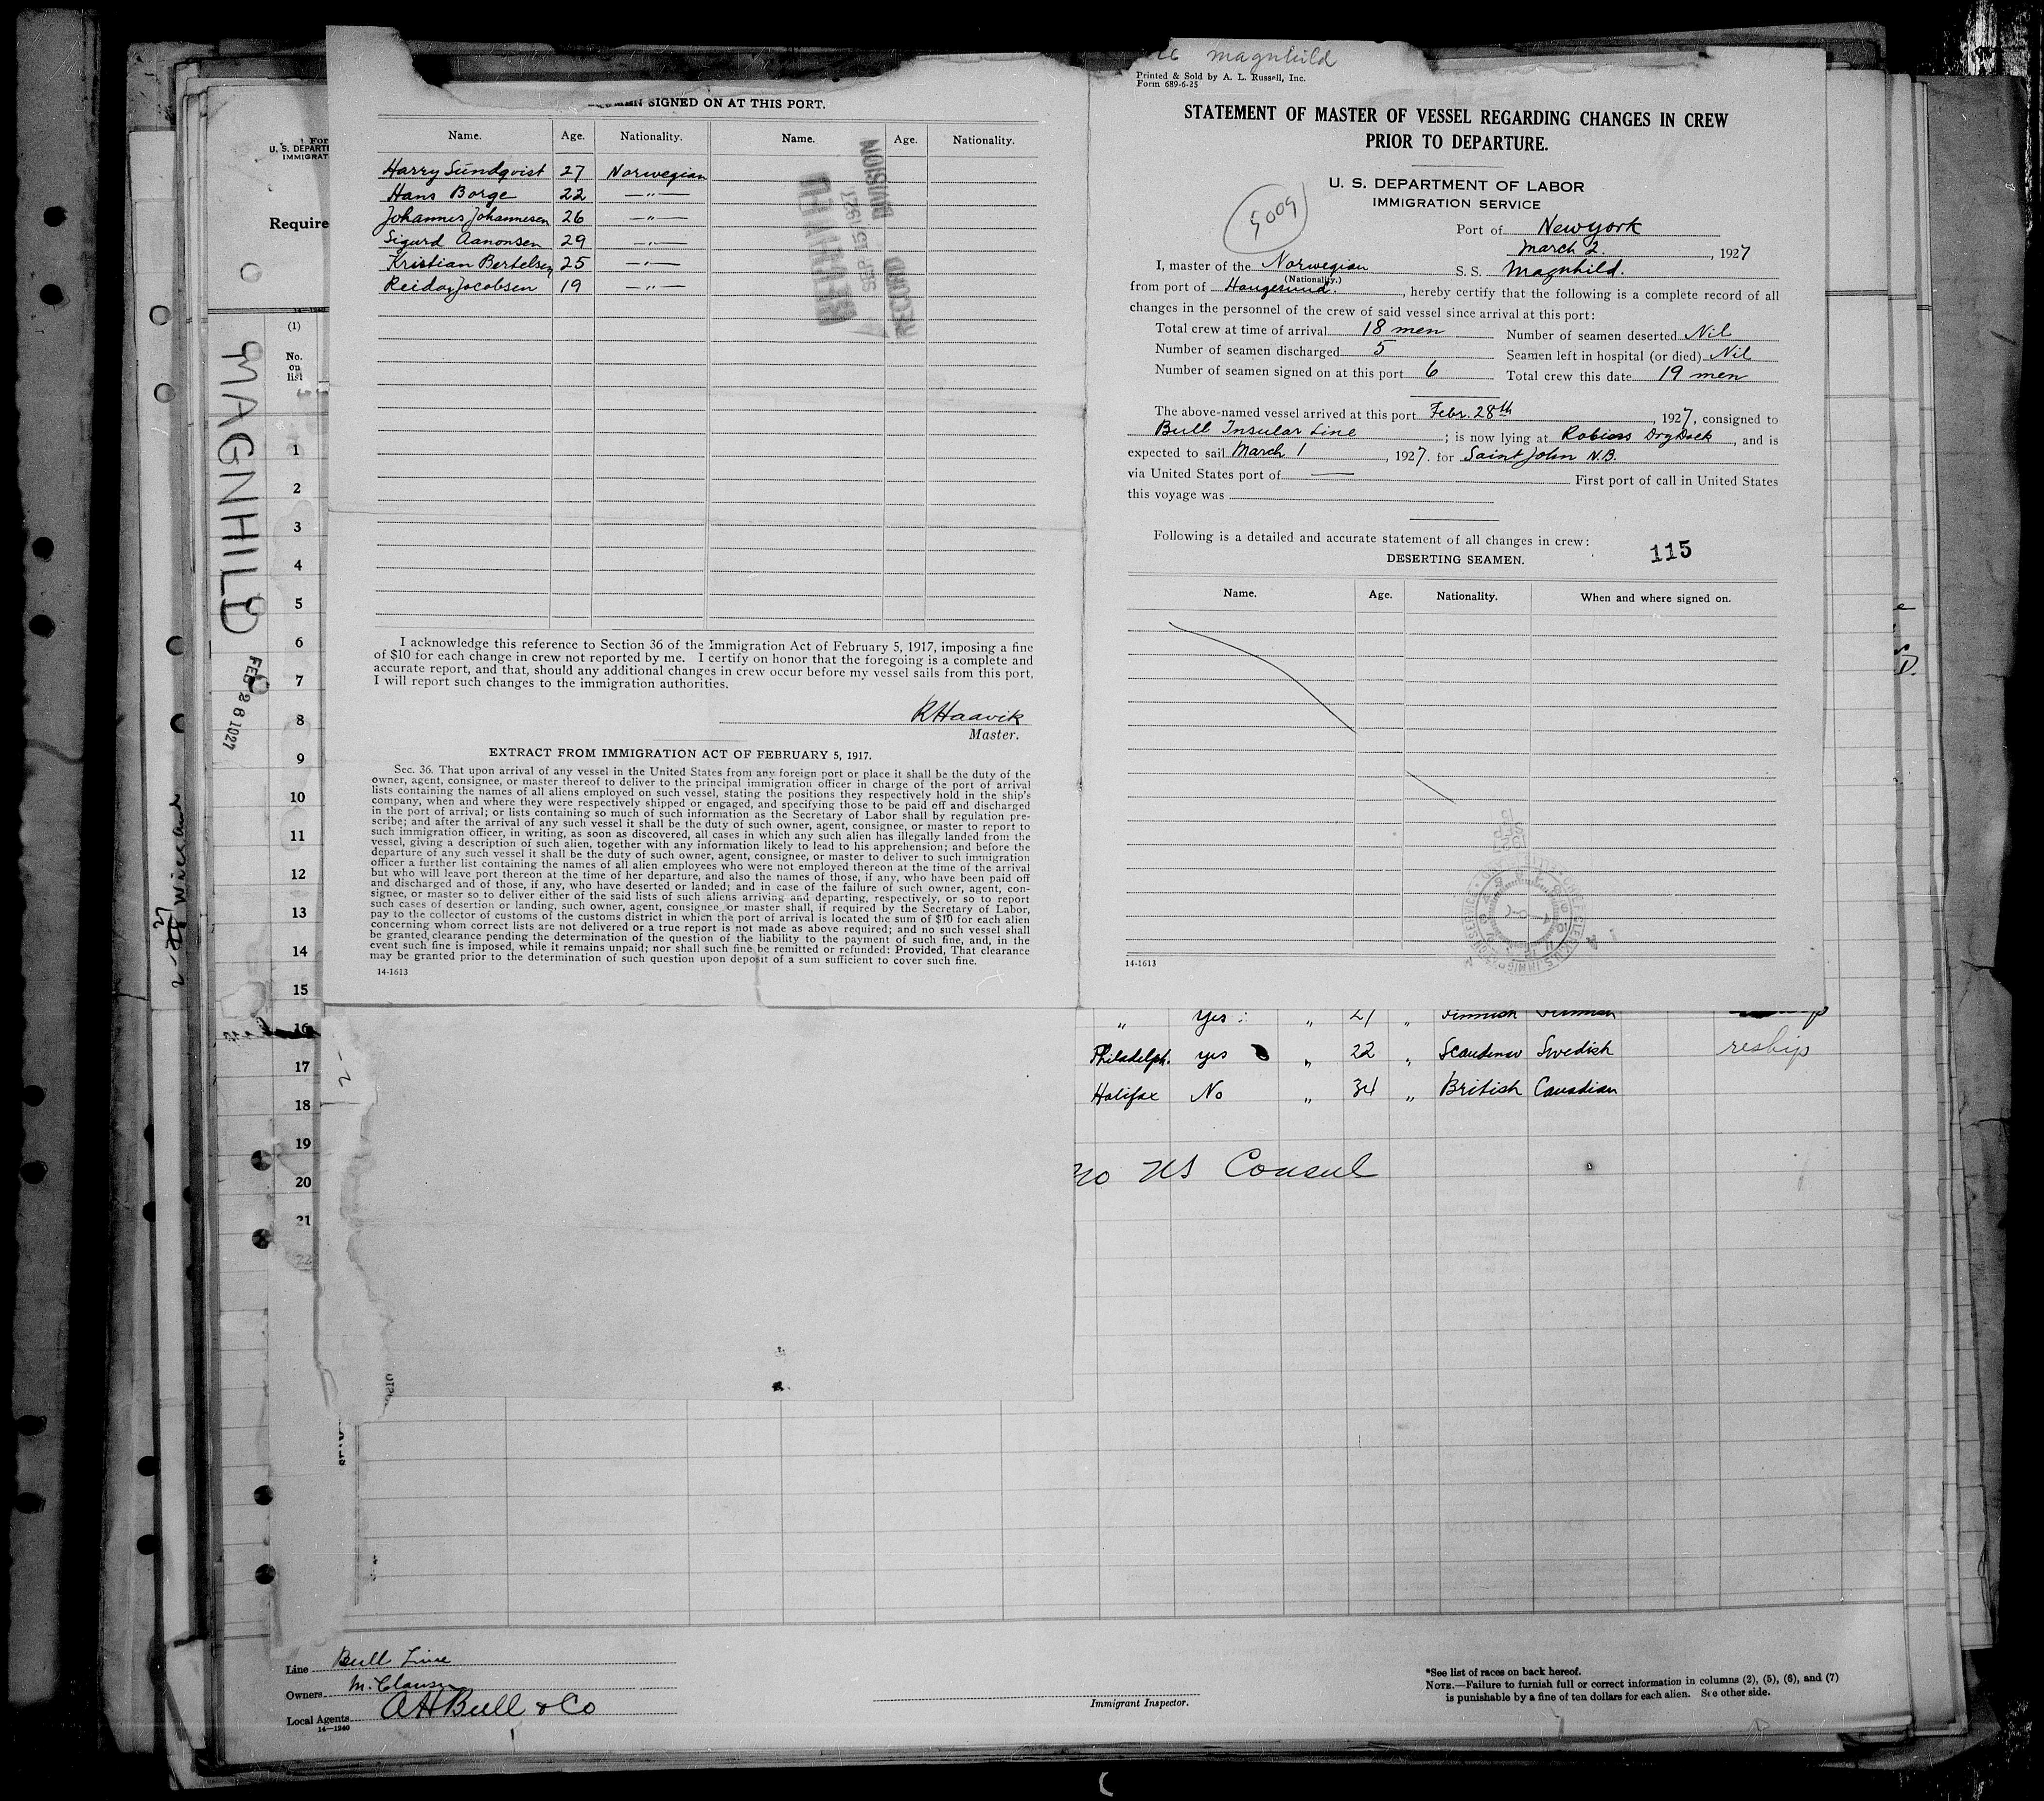 SIGNED ON AT THIS PORT.
Name. Age. Nationality. Name. Age. Nationality.
Harry Sundqvist 27 Norwegian
Hans Borge 22 —"—
Johannes Johannesen 26 —"—
Sigurd Aanonsen 29 —"—
Kristian Bertelsen 25 —"—
Reidar Jacobsen 19 —"—
SEP 25 1927
RECORD DIVISION
I acknowledge this reference to Section 36 of the Immigration Act of February 5, 1917, imposing a fine
of $10 for each change in crew not reported by me. I certify on honor that the foregoing is a complete and
accurate report, and that, should any additional changes in crew occur before my vessel sails from this port,
I will report such changes to the immigration authorities.
K Haavik
Master.
EXTRACT FROM IMMIGRATION ACT OF FEBRUARY 5, 1917.
Sec. 36. That upon arrival of any vessel in the United States from any foreign port or place it shall be the duty of the
owner, agent, consignee, or master thereof to deliver to the principal immigration officer in charge of the port of arrival
lists containing the names of all aliens employed on such vessel, stating the positions they respectively hold in the ship's
company, when and where they were respectively shipped or engaged, and specifying those to be paid off and discharged
in the port of arrival; or lists containing so much of such information as the Secretary of Labor shall by regulation pre-
scribe; and after the arrival of any such vessel it shall be the duty of such owner, agent, consignee, or master to report to
such immigration officer, in writing, as soon as discovered, all cases in which any such alien has illegally landed from the
vessel, giving a description of such alien, together with any information likely to lead to his apprehension; and before the
departure of any such vessel it shall be the duty of such owner, agent, consignee, or master to deliver to such immigration
officer a further list containing the names of all alien employees who were not employed thereon at the time of the arrival
but who will leave port thereon at the time of her departure, and also the names of those, if any, who have been paid off
and discharged and of those, if any, who have deserted or landed; and in case of the failure of such owner, agent, con-
signee, or master so to deliver either of the said lists of such aliens arriving and departing, respectively, or so to report
such cases of desertion or landing, such owner, agent, consignee or master shall, if required by the Secretary of Labor,
pay to the collector of customs of the customs district in which the port of arrival is located the sum of $10 for each alien
concerning whom correct lists are not delivered or a true report is not made as above required; and no such vessel shall
be granted clearance pending the determination of the question of the liability to the payment of such fine, and, in the
event such fine is imposed, while it remains unpaid; nor shall such fine be remitted or refunded: Provided, That clearance
may be granted prior to the determination of such question upon deposit of a sum sufficient to cover such fine.
14-1613
Magnhild
Printed & Sold by A. L. Russell, Inc.
Form 689-6-25
STATEMENT OF MASTER OF VESSEL REGARDING CHANGES IN CREW
PRIOR TO DEPARTURE.
U. S. DEPARTMENT OF LABOR
IMMIGRATION SERVICE
5009
Port of New York
March 2. , 1927
I, master of the Norwegian S. S. Magnhild.
(Nationality.)
from port of Haugesund. , hereby certify that the following is a complete record of all
changes in the personnel of the crew of said vessel since arrival at this port:
Total crew at time of arrival 18 men Number of seamen deserted Nil
Number of seamen discharged 5 Seamen left in hospital (or died) Nil
Number of seamen signed on at this port 6 Total crew this date 19 men
The above-named vessel arrived at this port Febr. 28th , 1927, consigned to
Bull Insular Line ; is now lying at Robins DryDock , and is
expected to sail March 1 , 1927. for Saint John N.B.
via United States port of — First port of call in United States
this voyage was
Following is a detailed and accurate statement of all changes in crew:
115
DESERTING SEAMEN.
Name. Age. Nationality. When and where signed on.
14-1613
For
U. S. DEPART
IMMIGRAT
Require
(1)
No.
on
list
MAGNHILD
FEB 28 1927
1
2
3
4
5
6
7
8
9
10
11
12
13
14
15
16
17
18
19
20
21
" Yes " 21 " Finnish
Philadelph. yes " 22 " Scandinav Swedish reship
Halifax No " 34 " British Canadian
No US Consul
Line Bull Line
Owners M. Clausen
Local Agents A H Bull & Co
14—1240
Immigrant Inspector.
*See list of races on back hereof.
NOTE.—Failure to furnish full or correct information in columns (2), (5), (6), and (7)
is punishable by a fine of ten dollars for each alien. See other side.